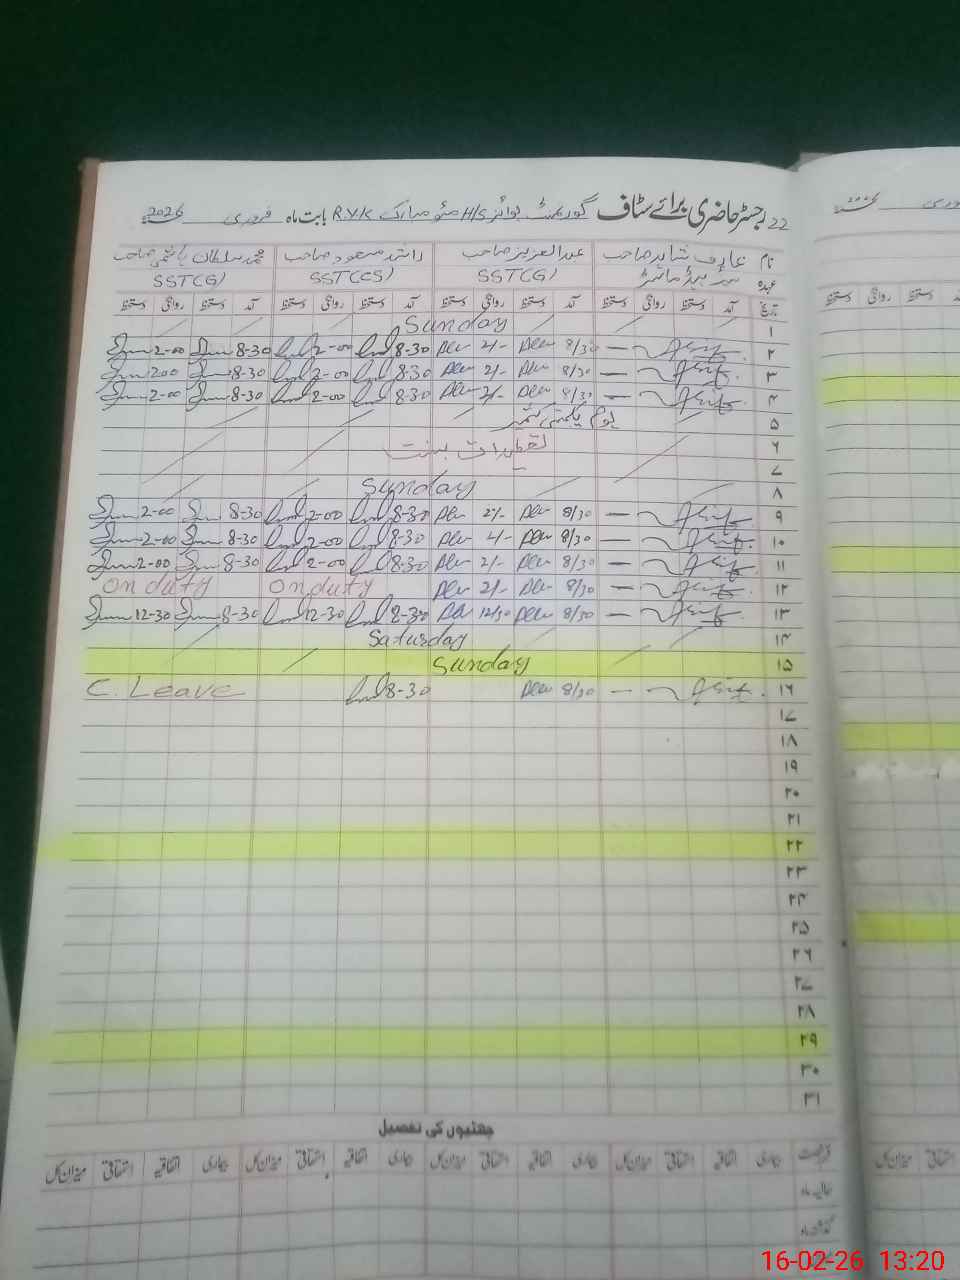 22 رجسٹر حاضری برائے سٹاف گورنمنٹ بوائز H/S مئو مبارک R.Y.K بابت ماہ فروری 2026
نام عارف شاہد صاحب عبدالعزیز صاحب راشد مسعود صاحب محمد سلطان ہاشمی صاحب
عہدہ سینئر ہیڈ ماسٹر SST(G) SST(CS) SST(G)
تاریخ آمد دستخط روانگی دستخط آمد دستخط روانگی دستخط آمد دستخط روانگی دستخط آمد دستخط روانگی دستخط
۱ Sunday
۲ 8/30 2/- 8-30 2-00 8-30 2-00
۳ 8/30 2/- 8-30 2-00 8-30 200
۴ 8/30 2/- 8-30 2-00 8-30 2-00
۵ یوم یکجہتی کشمیر
۶ تعطیلات بسنت
۷
۸ Sunday
۹ 8/30 2/- 8-30 2-00 8-30 2-00
۱۰ 8/30 2/- 8-30 2-00 8-30 2-00
۱۱ 8/30 2/- 08-30 2-00 8-30 2-00
۱۲ 8/30 2/- On duty On duty
۱۳ 8/30 12/30 8-30 12-30 8-30 12-30
۱۴ Saturday
۱۵ Sunday
۱۶ 8/30 8-30 C. Leave
۱۷
۱۸
۱۹
۲۰
۲۱
۲۲
۲۳
۲۴
۲۵
۲۶
۲۷
۲۸
۲۹
۳۰
۳۱
چھٹیوں کی تفصیل
قسم رخصت بیماری اتفاقیہ استحقاقی میزان کل بیماری اتفاقیہ استحقاقی میزان کل بیماری اتفاقیہ استحقاقی میزان کل بیماری اتفاقیہ استحقاقی میزان کل
حالیہ ماہ
گذشتہ ماہ
16-02-26 13:20